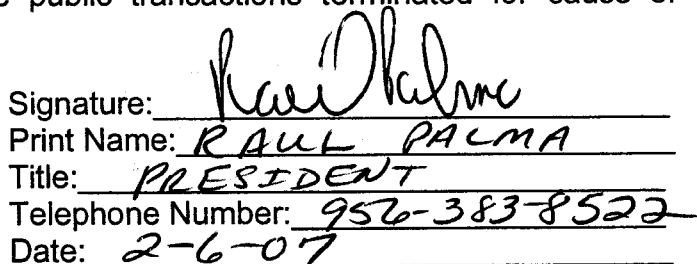 public transactions terminated for cause or
Signature: Raul Palma
Print Name: RAUL PALMA
Title: PRESIDENT
Telephone Number: 956-383-8522
Date: 2-6-07